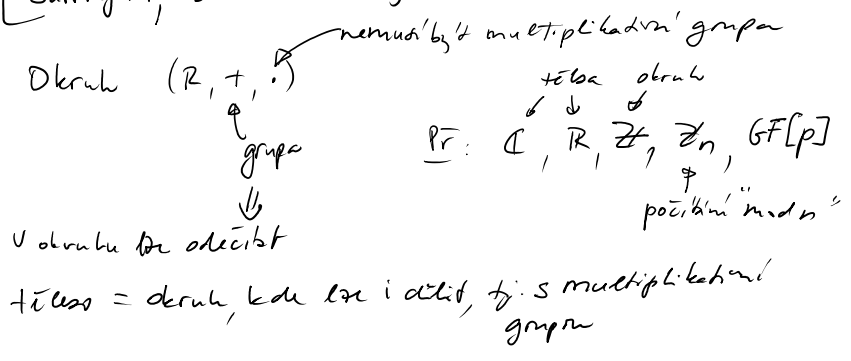 nemusí být multiplikativní grupa
Okruh (R, +, ·)
tělesa okruh
grupa
Př: ℂ, ℝ, ℤ, ℤn, GF[p]
počítání "mod n"
v okruhu lze odečítat
těleso = okruh, kde lze i dělit, tj. s multiplikativní
grupou